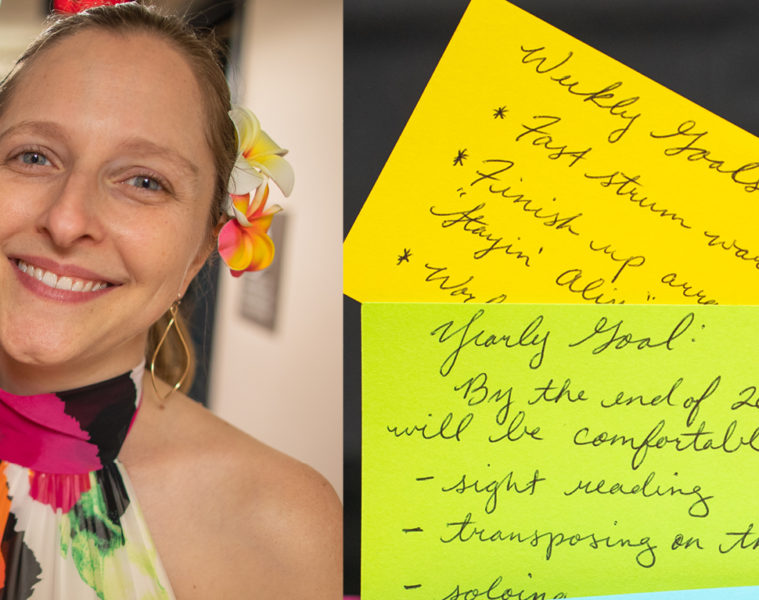 Weekly Goals
* Fast strum
* Finish up
"Stayin' Alive"
*
Yearly Goal:
By the end of
will be
- sight reading
- transposing on
- soloing